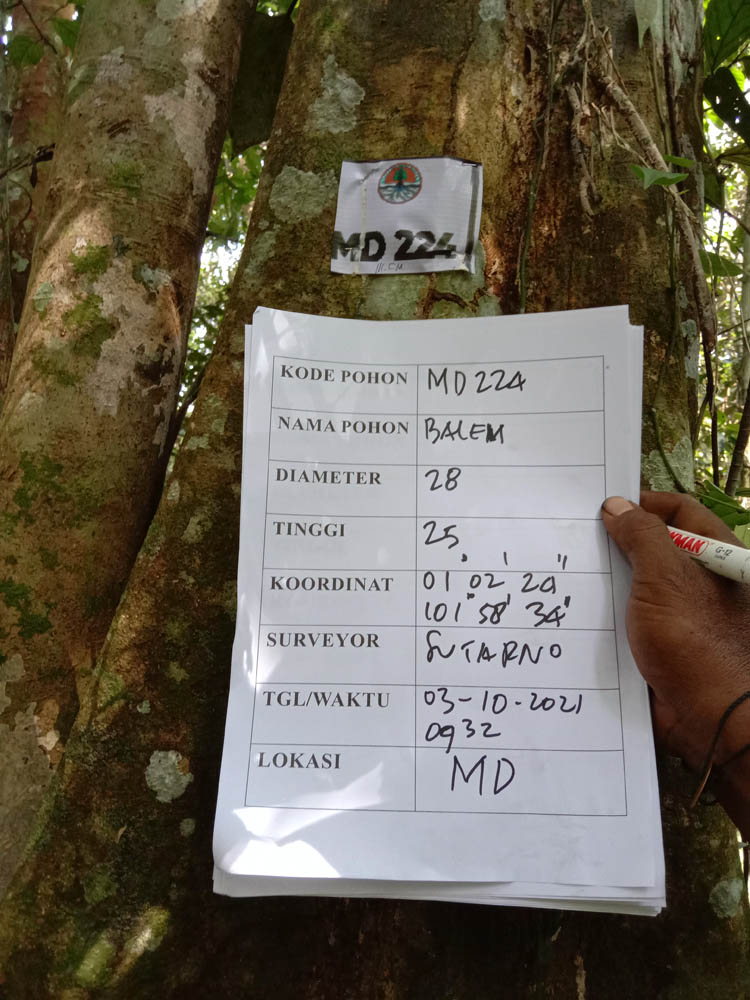 MD 224
KODE POHON MD 224
NAMA POHON BALEM
DIAMETER 28
TINGGI 25
KOORDINAT 01° 02' 24"
101° 58' 34"
SURVEYOR SUTARNO
TGL/WAKTU 03-10-2021
0932
LOKASI MD
G-12